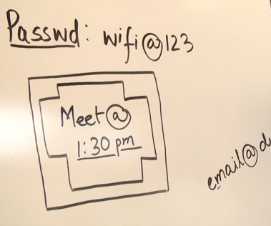 Passwd: wifi@123
Meet@
1:30 pm
email@d